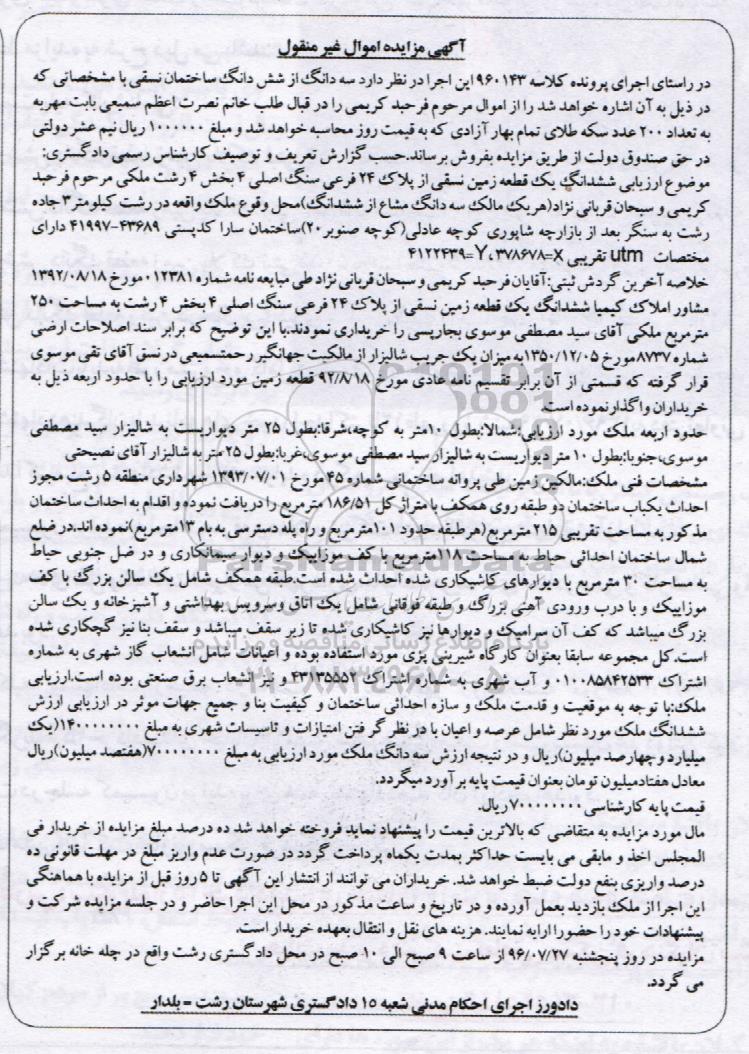 آگهی مزایده اموال غیر منقول
در راستای اجرای پرونده کلاسه ۹۶۰۱۴۳ این اجرا در نظر دارد سه دانگ از شش دانگ ساختمان نسقی با مشخصاتی که
در ذیل به آن اشاره خواهد شد را از اموال مرحوم فرحبد کریمی را در قبال طلب خانم نصرت اعظم سمیعی بابت مهریه
به تعداد ۲۰۰ عدد سکه طلای تمام بهار آزادی که به قیمت روز محاسبه خواهد شد و مبلغ ۱۰۰۰۰۰۰ ریال نیم عشر دولتی
در حق صندوق دولت از طریق مزایده بفروش برساند.حسب گزارش تعریف و توصیف کارشناس رسمی دادگستری:
موضوع ارزیابی ششدانگ یک قطعه زمین نسقی از پلاک ۲۴ فرعی سنگ اصلی ۴ بخش ۴ رشت ملکی مرحوم فرحبد
کریمی و سبحان قربانی نژاد(هریک مالک سه دانگ مشاع از ششدانگ)محل وقوع ملک واقعه در رشت کیلومتر ۳ جاده
رشت به سنگر بعد از بازارچه شاپوری کوچه عادلی(کوچه صنوبر۲۰)ساختمان سارا کدپستی ۴۳۶۸۹-۴۱۹۹۷ دارای
مختصات utm تقریبی X=۰۳۷۸۶۷۸ ،Y=۴۱۲۲۴۳۹
خلاصه آخرین گردش ثبتی:آقایان فرحبد کریمی و سبحان قربانی نژاد طی مبایعه نامه شماره ۰۱۲۳۸۱ مورخ ۱۳۹۲/۰۸/۱۸
مشاور املاک کیمیا ششدانگ یک قطعه زمین نسقی از پلاک ۲۴ فرعی سنگ اصلی ۴ بخش ۴ رشت به مساحت ۲۵۰
مترمربع ملکی آقای سید مصطفی موسوی بجارپسی را خریداری نمودند.با این توضیح که برابر سند اصلاحات ارضی
شماره ۸۷۳۷مورخ ۱۳۵۰/۱۲/۰۵به میزان یک جریب شالیزار از مالکیت جهانگیر رحمتسمیعی در نسق آقای تقی موسوی
قرار گرفته که قسمتی از آن برابر تقسیم نامه عادی مورخ ۹۲/۸/۱۸ قطعه زمین مورد ارزیابی را با حدود اربعه ذیل به
خریداران واگذار نموده است.
حدود اربعه ملک مورد ارزیابی:شمالا:بطول ۱۰متر به کوچه،شرقا:بطول ۲۵ متر دیواریست به شالیزار سید مصطفی
موسوی،جنوبا:بطول ۱۰ متر دیواریست به شالیزار سید مصطفی موسوی،غربا:بطول ۲۵ متر به شالیزار آقای نصیحتی
مشخصات فنی ملک:مالکین زمین طی پروانه ساختمانی شماره ۴۵ مورخ ۱۳۹۳/۰۷/۰۱ شهرداری منطقه ۵ رشت مجوز
احداث یکباب ساختمان دو طبقه روی همکف با متراژ کل ۱۸۶/۵۱ مترمربع را دریافت نموده و اقدام به احداث ساختمان
مذکور به مساحت تقریبی ۲۱۵ مترمربع(هر طبقه حدود ۱۰۱مترمربع و راه پله دسترسی به بام ۱۳مترمربع)نموده اند.در ضلع
شمال ساختمان احداثی حیاط به مساحت ۱۱۸مترمربع با کف موزاییک و دیوار سیمانکاری و در ضل جنوبی حیاط
به مساحت ۳۰ مترمربع با دیوارهای کاشیکاری شده احداث شده است.طبقه همکف شامل یک سالن بزرگ با کف
موزاییک و با درب ورودی آهنی بزرگ و طبقه فوقانی شامل یک اتاق وسرویس بهداشتی و آشپزخانه و یک سالن
بزرگ میباشد که کف آن سرامیک و دیوارها نیز کاشیکاری شده تا زیر سقف میباشد و سقف بنا نیز گچکاری شده
است.کل مجموعه سابقا بعنوان کارگاه شیرینی پزی مورد استفاده بوده و اعیانات شامل انشعاب گاز شهری به شماره
اشتراک ۰۱۰۰۸۵۸۴۲۵۳۳ و آب شهری به شماره اشتراک ۴۳۱۳۵۵۵۲ و نیز انشعاب برق صنعتی بوده است.ارزیابی
ملک:با توجه به موقعیت و قدمت ملک و سازه احداثی ساختمان و کیفیت بنا و جمیع جهات موثر در ارزیابی ارزش
ششدانگ ملک مورد نظر شامل عرصه و اعیان با در نظر گرفتن امتیازات و تاسیسات شهری به مبلغ ۱۴۰۰۰۰۰۰۰۰(یک
میلیارد و چهارصد میلیون)ریال و در نتیجه ارزش سه دانگ ملک مورد ارزیابی به مبلغ ۷۰۰۰۰۰۰۰۰(هفتصد میلیون)ریال
معادل هفتادمیلیون تومان بعنوان قیمت پایه برآورد میگردد.
قیمت پایه کارشناسی ۷۰۰۰۰۰۰۰۰ ریال.
مال مورد مزایده به متقاضی که بالاترین قیمت را پیشنهاد نماید فروخته خواهد شد ده درصد مبلغ مزایده از خریدار فی
المجلس اخذ و مابقی می بایست حداکثر بمدت یکماه پرداخت گردد در صورت عدم واریز مبلغ در مهلت قانونی ده
درصد واریزی بنفع دولت ضبط خواهد شد. خریداران می توانند از انتشار این آگهی تا ۵ روز قبل از مزایده با هماهنگی
این اجرا از ملک بازدید بعمل آورده و در تاریخ و ساعت مذکور در محل این اجرا حاضر و در جلسه مزایده شرکت و
پیشنهادات خود را حضورا ارایه نمایند. هزینه های نقل و انتقال بعهده خریدار است.
مزایده در روز پنجشنبه ۹۶/۰۷/۲۷ از ساعت ۹ صبح الی ۱۰ صبح در محل دادگستری رشت واقع در چله خانه برگزار
می گردد.
دادورز اجرای احکام مدنی شعبه ۱۵ دادگستری شهرستان رشت = بلدار
ParsNamadData
پایگاه اطلاع رسانی مناقصه و مزایده